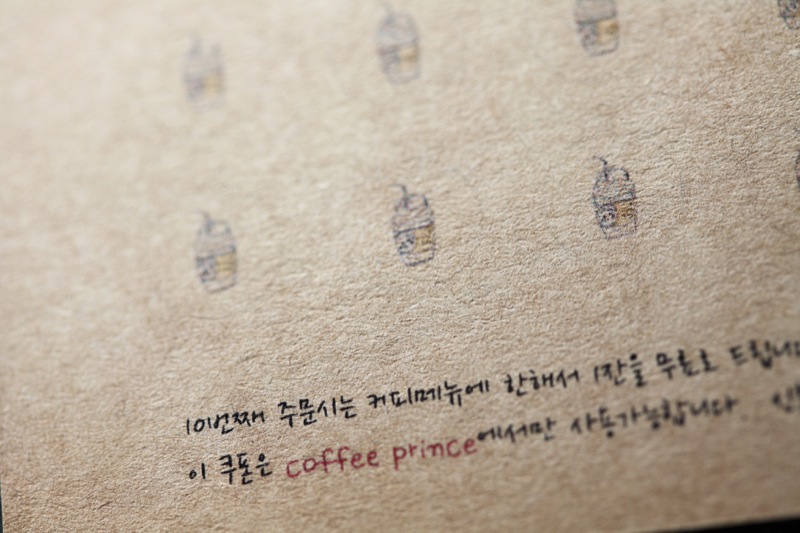 10번째 주문시는 커피메뉴에 한해서 1잔을 무료로 드립니다
이 쿠폰은 coffee prince에서만 사용가능합니다